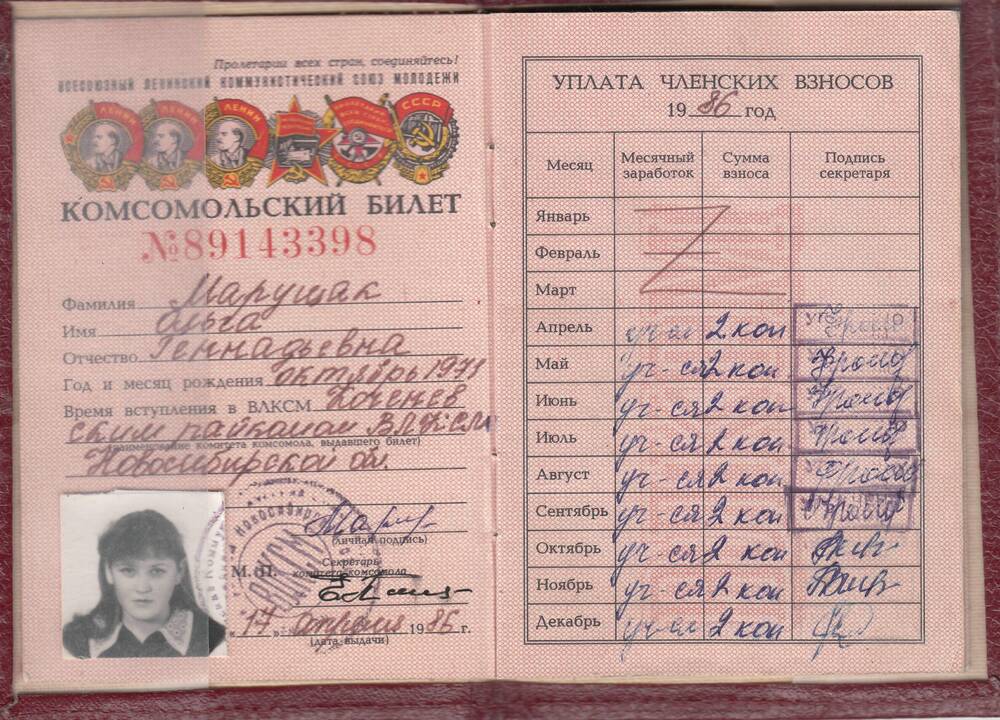 Пролетарии всех стран, соединяйтесь!
ВСЕСОЮЗНЫЙ ЛЕНИНСКИЙ КОММУНИСТИЧЕСКИЙ СОЮЗ МОЛОДЕЖИ
ЛЕНИН ЛЕНИН ЛЕНИН СССР
КОМСОМОЛЬСКИЙ БИЛЕТ
№89143398
Фамилия Марущак
Имя Ольга
Отчество Геннадьевна
Год и месяц рождения октябрь 1971
Время вступления в ВЛКСМ Коченев
ским райкомом ВЛКСМ
(наименование комитета комсомола, выдавшего билет)
Новосибирской об.
(личная подпись)
М. П. Секретарь
комитета комсомола
„17„ апреля 1986 г.
(дата выдачи)
УПЛАТА ЧЛЕНСКИХ ВЗНОСОВ
1986 год
Месяц Месячный заработок Сумма взноса Подпись секретаря
Январь
Февраль
Март
Апрель уч-ся 2 коп
Май уч-ся 2 коп
Июнь уч-ся 2 коп
Июль уч-ся 2 коп
Август уч-ся 2 коп
Сентябрь уч-ся 2 коп
Октябрь уч-ся 2 коп
Ноябрь уч-ся 2 коп
Декабрь уч-ся 2 коп